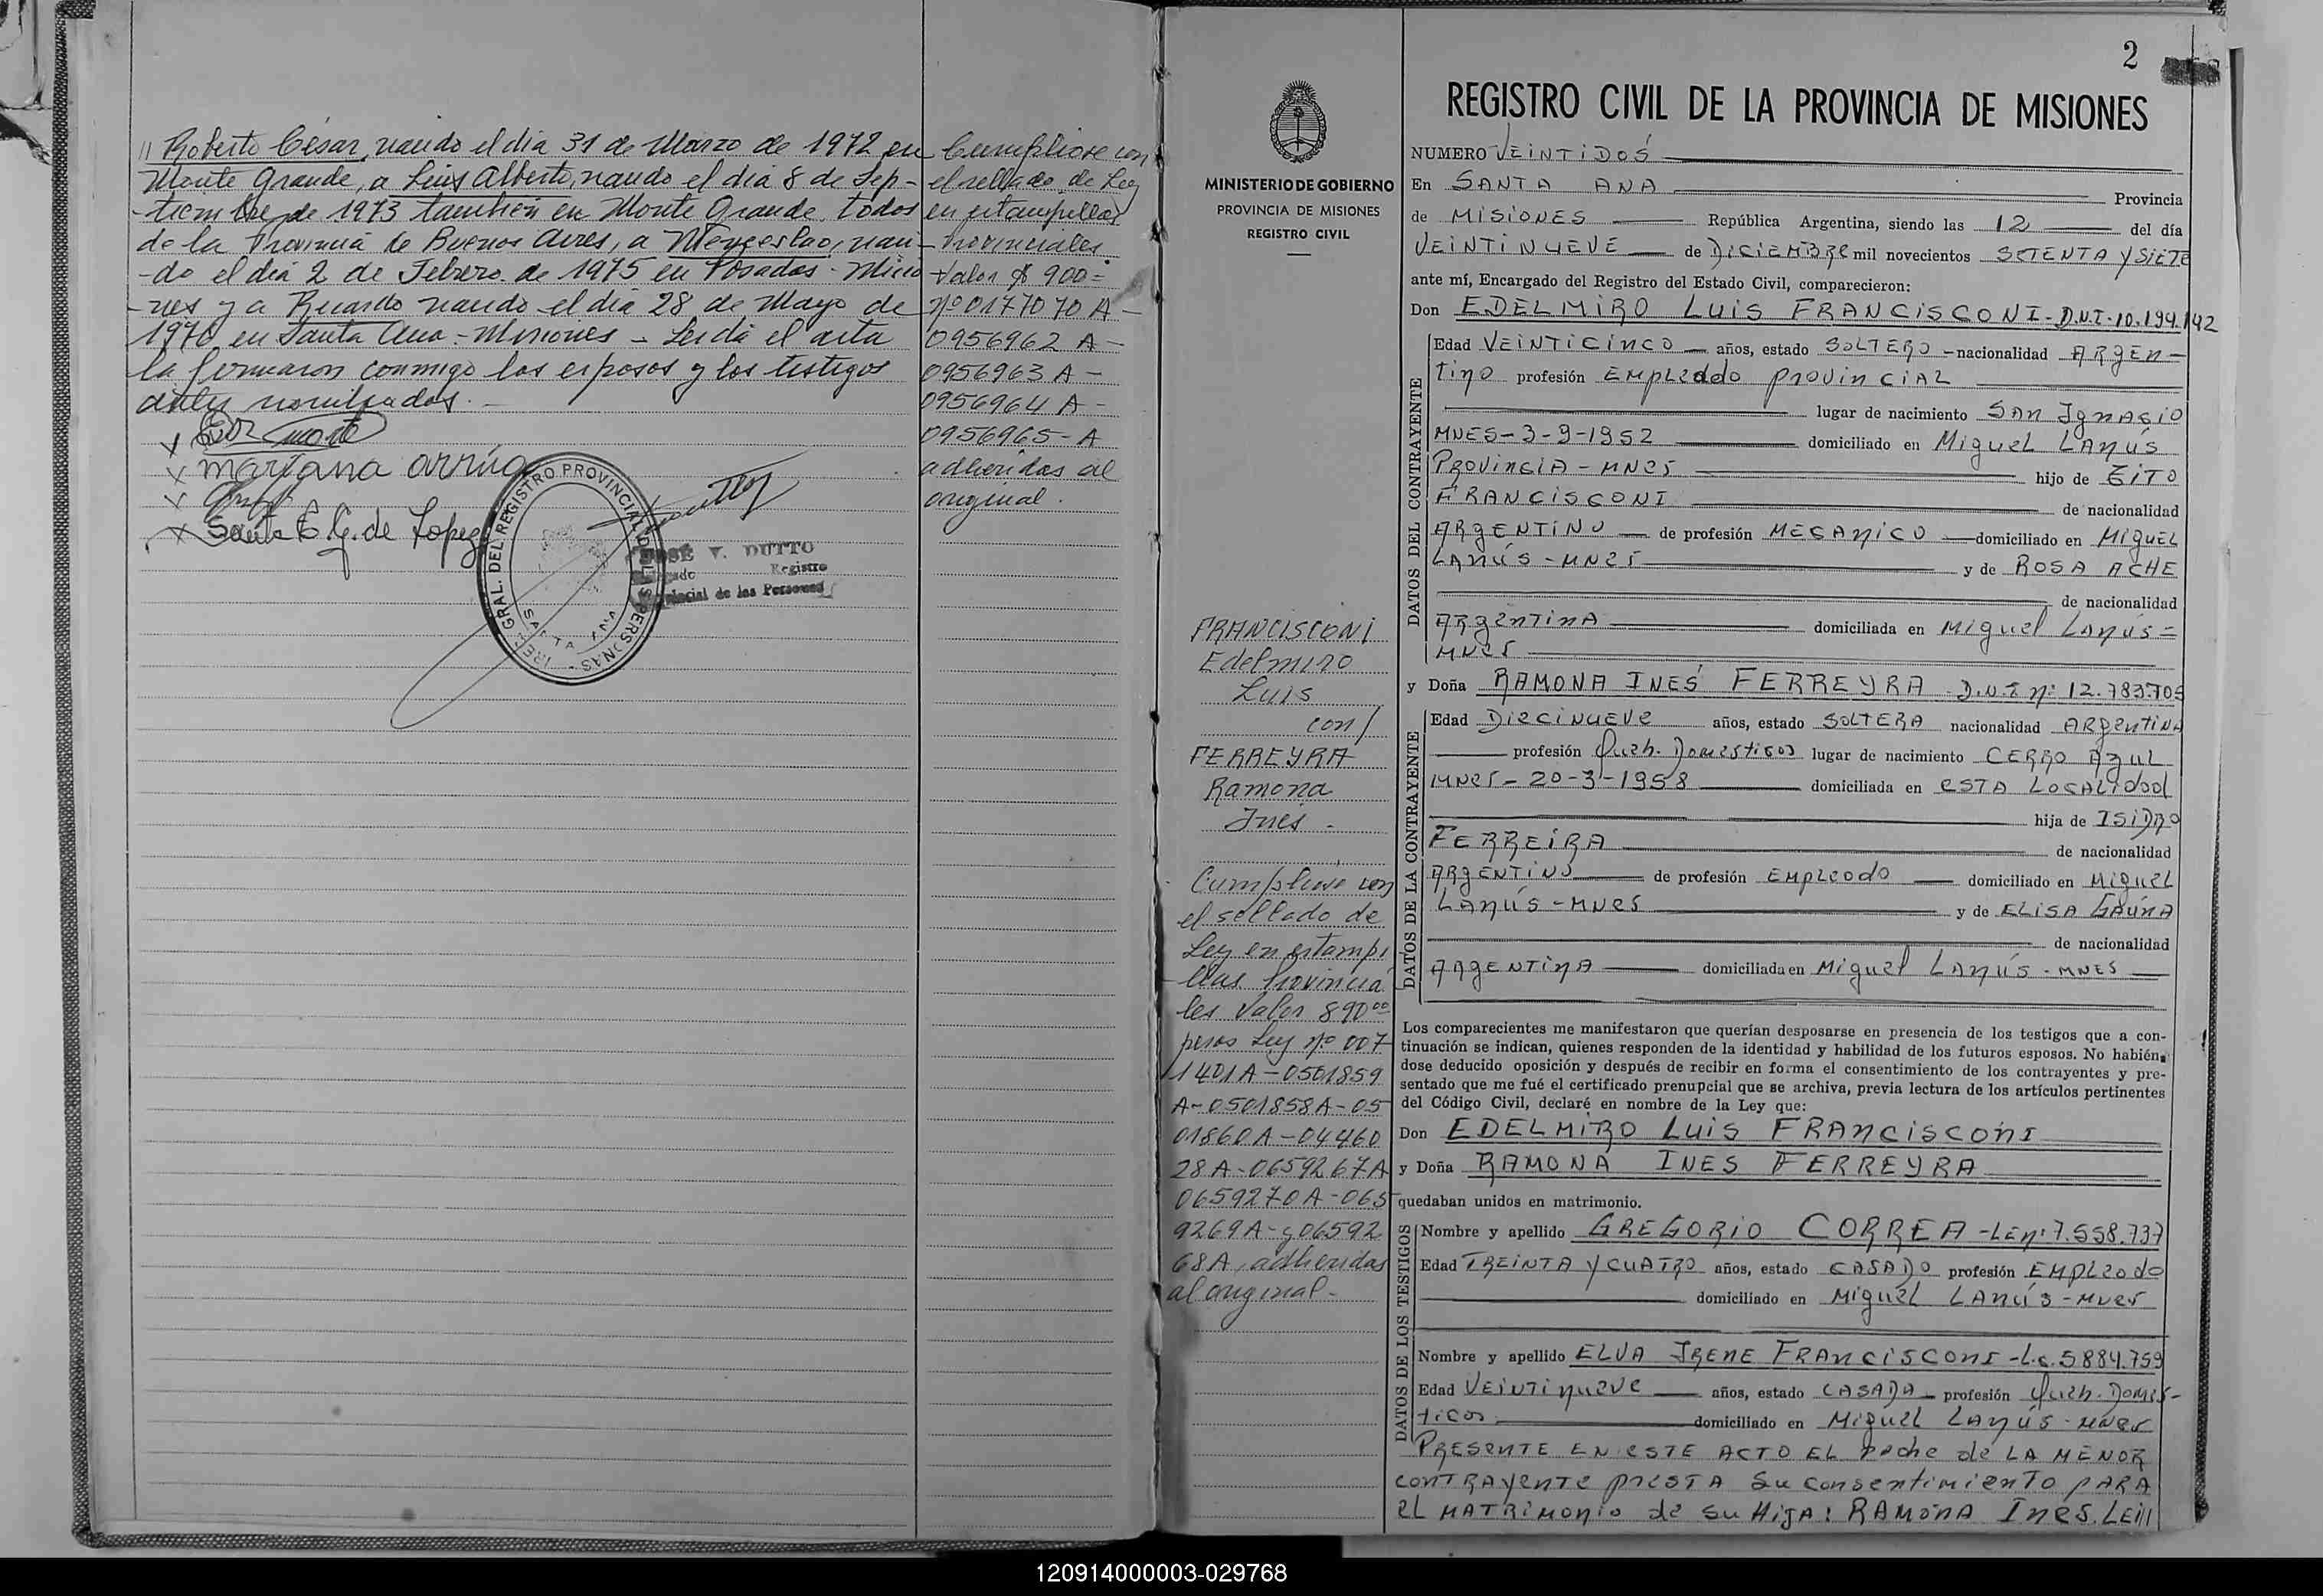 // Roberto César, nacido el día 31 de Marzo de 1972 en
Monte Grande, a Luis Alberto, nacido el día 8 de Sep-
-tiembre de 1973 también en Monte Grande, todos
de la Provincia de Buenos Aires, a Wenceslao, naci-
-do el día 2 de Febrero de 1975 en Posadas - Misio
-nes y a Ricardo nacido el día 28 de Mayo de
1976 en Santa Ana - Misiones - Leída el acta
la firmaron conmigo los esposos y los testigos
antes nombrados. -
x
x mariana
x
x Santa E. G. de Lopez
GRAL. DEL REGISTRO PROVINCIAL DE LAS PERSONAS
SANTA ANA
JOSÉ V. DUTTO
Registro
Provincial de las Personas
Cumpliose con
el sellado de Ley
en estampillas
Provinciales
Valor $ 900=
Nº 0177070 A -
0956962 A -
0956963 A -
0956964 A -
0956965 - A
adheridas al
original.
MINISTERIO DE GOBIERNO
PROVINCIA DE MISIONES
REGISTRO CIVIL
FRANCISCONI
Edelmiro
Luis
con/
FERREYRA
Ramona
Inés -
Cumpliose con
el sellado de
Ley en estampi
llas Provincia
les Valor 890 00
pesos Ley Nº 007
1401A - 0501859
A - 0501858A - 05
01860A - 04460
28A - 0659267A
0659270A - 065
9269A - y 06592
68A, adheridas
al original -
2
REGISTRO CIVIL DE LA PROVINCIA DE MISIONES
NUMERO VEINTIDOS
En SANTA ANA Provincia
de MISIONES República Argentina, siendo las 12 del día
VEINTINUEVE de DICIEMBRE mil novecientos SETENTA Y SIETE
ante mí, Encargado del Registro del Estado Civil, comparecieron:
Don EDELMIRO LUIS FRANCISCONI - D.N.I. 10.194.142
DATOS DEL CONTRAYENTE
Edad VEINTICINCO años, estado SOLTERO - nacionalidad ARGEN-
TINO profesión EMPLEADO PROVINCIAL
lugar de nacimiento SAN IGNASIO
MNES - 3-9-1952 domiciliado en MIGUEL LANÚS
PROVINCIA - MNES hijo de TITO
FRANCISCONI de nacionalidad
ARGENTINO de profesión MECANICO domiciliado en MIGUEL
LANÚS - MNES y de ROSA ACHE
de nacionalidad
ARGENTINA domiciliada en MIGUEL LANÚS =
MNES
y Doña RAMONA INES FERREYRA D.N.I. Nº 12.783.705
DATOS DE LA CONTRAYENTE
Edad DIECINUEVE años, estado SOLTERA nacionalidad ARGENTINA
profesión Queh. Domesticos lugar de nacimiento CERRO AZUL
MNES - 20-3-1958 domiciliada en ESTA LOCALIDAD
hija de ISIDRO
FERREIRA de nacionalidad
ARGENTINO de profesión EMPLEADO domiciliado en MIGUEL
LANÚS - MNES y de ELISA GAUNA
de nacionalidad
ARGENTINA domiciliada en MIGUEL LANÚS - MNES
Los comparecientes me manifestaron que querían desposarse en presencia de los testigos que a con-
tinuación se indican, quienes responden de la identidad y habilidad de los futuros esposos. No habién-
dose deducido oposición y después de recibir en forma el consentimiento de los contrayentes y pre-
sentado que me fué el certificado prenupcial que se archiva, previa lectura de los artículos pertinentes
del Código Civil, declaré en nombre de la Ley que:
Don EDELMIRO LUIS FRANCISCONI
y Doña RAMONA INES FERREYRA
quedaban unidos en matrimonio.
DATOS DE LOS TESTIGOS
Nombre y apellido GREGORIO CORREA - L.E. Nº 7.558.737
Edad TREINTA Y CUATRO años, estado CASADO profesión EMPLEADO
domiciliado en MIGUEL LANÚS - MNES
Nombre y apellido ELVA IRENE FRANCISCONI - L.C. 5.884.759
Edad VEINTINUEVE años, estado CASADA profesión Queh. Domes-
ticos domiciliado en MIGUEL LANÚS - MNES
PRESENTE EN ESTE ACTO EL padre de LA MENOR
CONTRAYENTE PRESTA Su consentimiento PARA
EL MATRIMONIO de su Hija: RAMONA INES. LEI//
120914000003-029768